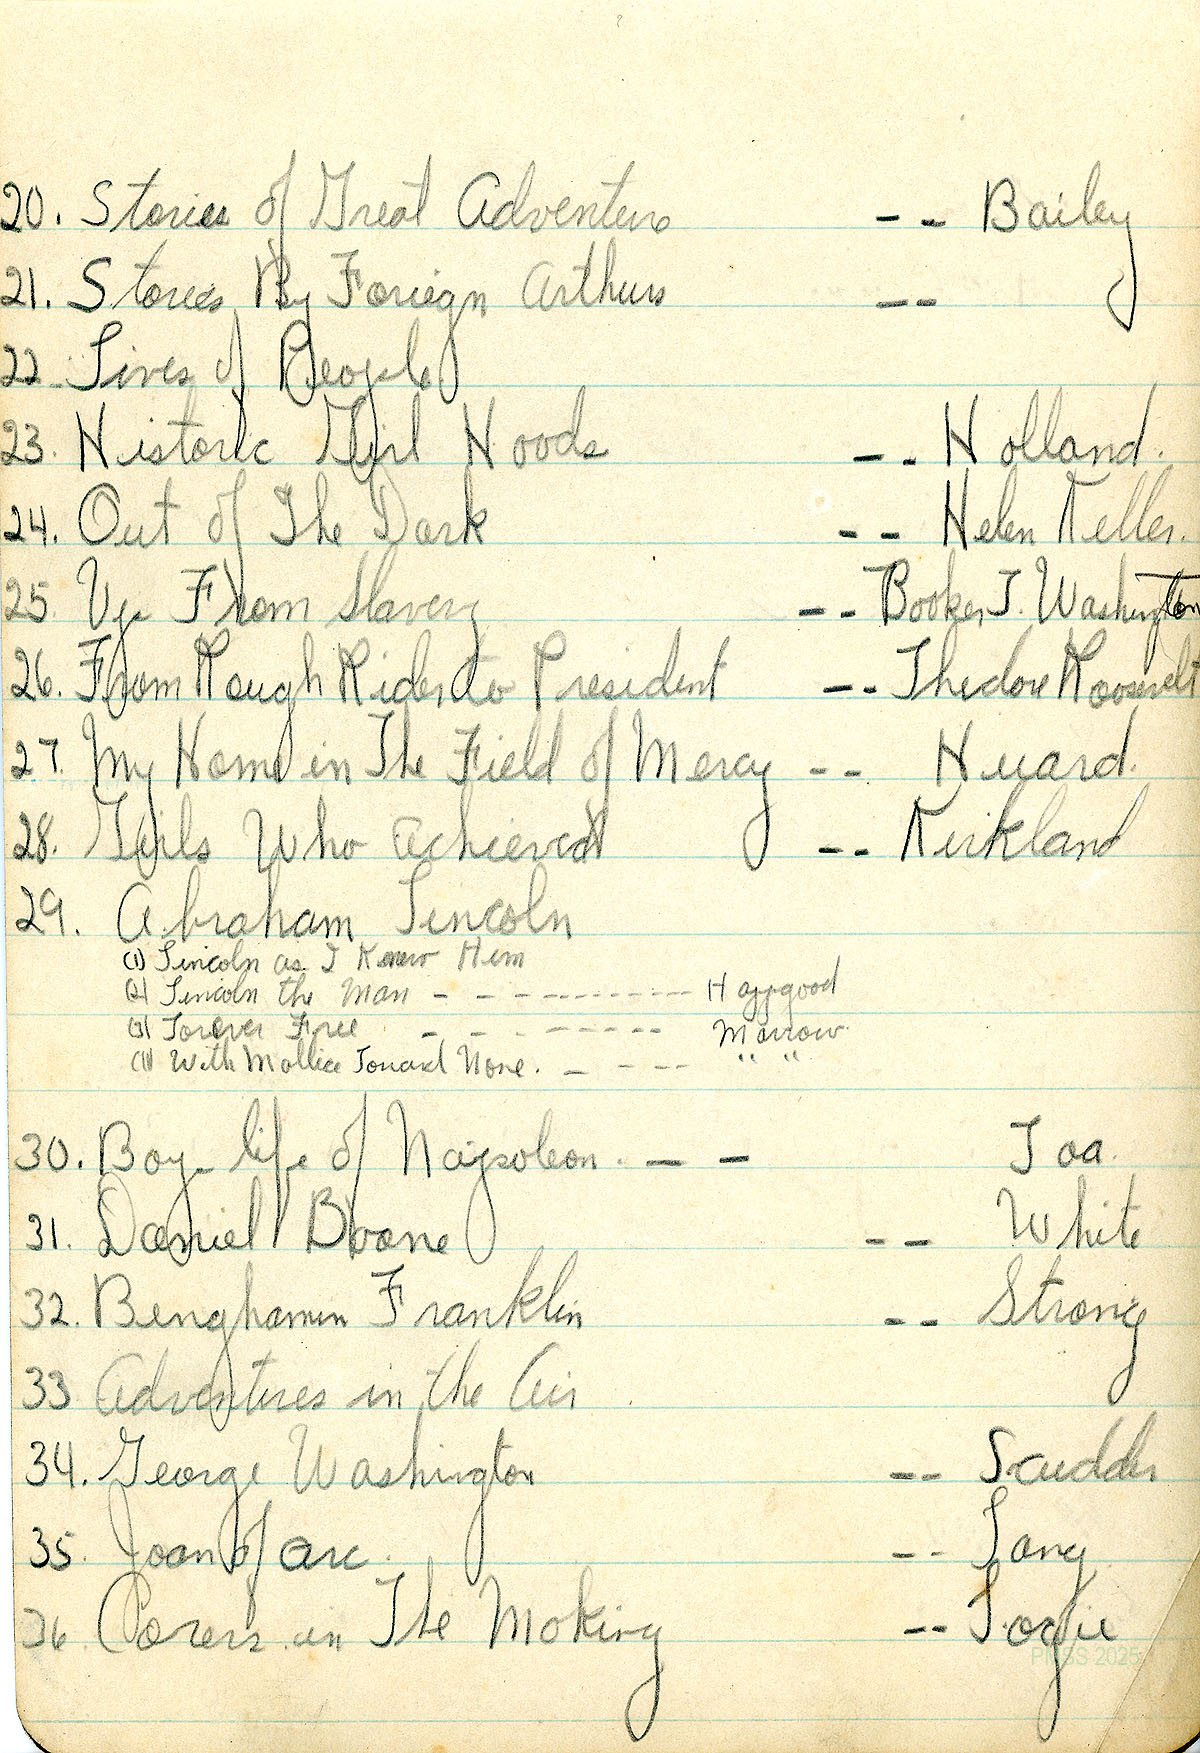 20. Stories of Great Adventure -- Bailey
21. Stories By Foriegn Arthurs --
22. Lives of People
23. Historic Girl Hoods -- Holland.
24. Out of The Dark -- Helen Keller.
25. Up From Slavery -- Booker T. Washington
26. From Rough Rider to President -- Thedore Roosevelt
27. My Home in The Field of Mercy -- Huard.
28. Girls Who Achieved -- Kirkland
29. Abraham Lincoln
(1) Lincoln as I Knew Him
(2) Lincoln the Man - - - - - - - - - - Happgood
(3) Forever Free - - - - - - - - - Morrow.
(4) With Mallice Toward None. - - - - - " "
30. Boy life of Napoleon. -- Foa.
31. Daniel Boone -- White
32. Benghamin Franklin -- Strong
33 Adventures in the Air.
34. George Washington -- Scudder
35. Joan of Arc. -- Lang
36. in The Making --
PMSS 2025